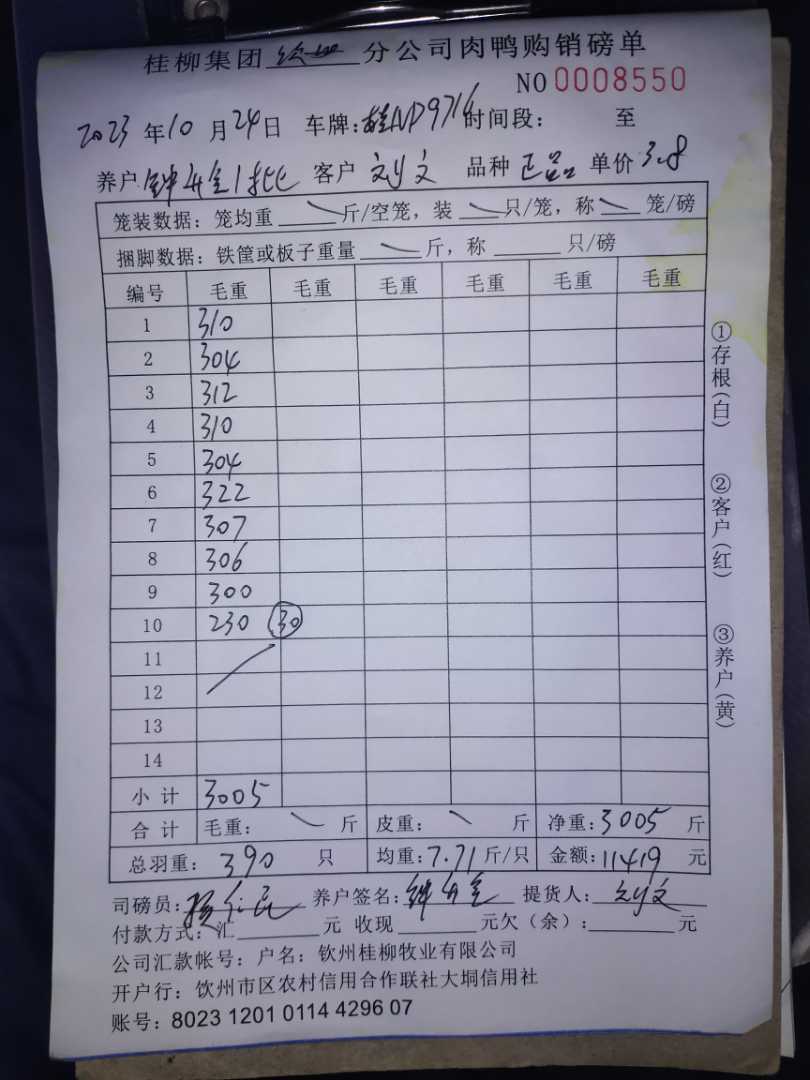 桂柳集团 分公司肉鸭购销磅单
NO 0008550
2023 年 10 月 24 日 车牌:桂ND9716 时间段: 至
养户 钟 1批 客户 刘文 品种 正品 单价 3.8
笼装数据:笼均重 斤/空笼,装 只/笼,称 笼/磅
捆脚数据:铁筐或板子重量 斤,称 只/磅
编号 毛重 毛重 毛重 毛重 毛重 毛重
1 310
2 304
3 312
4 310
5 304
6 322
7 307
8 306
9 300
10 230 30
11
12
13
14
小 计 3005
合 计 毛重: 斤 皮重: 斤 净重:3005 斤
总羽重: 390 只 均重:7.71 斤/只 金额:11419 元
司磅员: 养户签名:钟 提货人:刘文
付款方式:汇 元 收现 元欠(余): 元
公司汇款帐号:户名:钦州桂柳牧业有限公司
开户行:饮州市区农村信用合作联社大垌信用社
账号:8023 1201 0114 4296 07
①存根(白)
②客户(红)
③养户(黄)